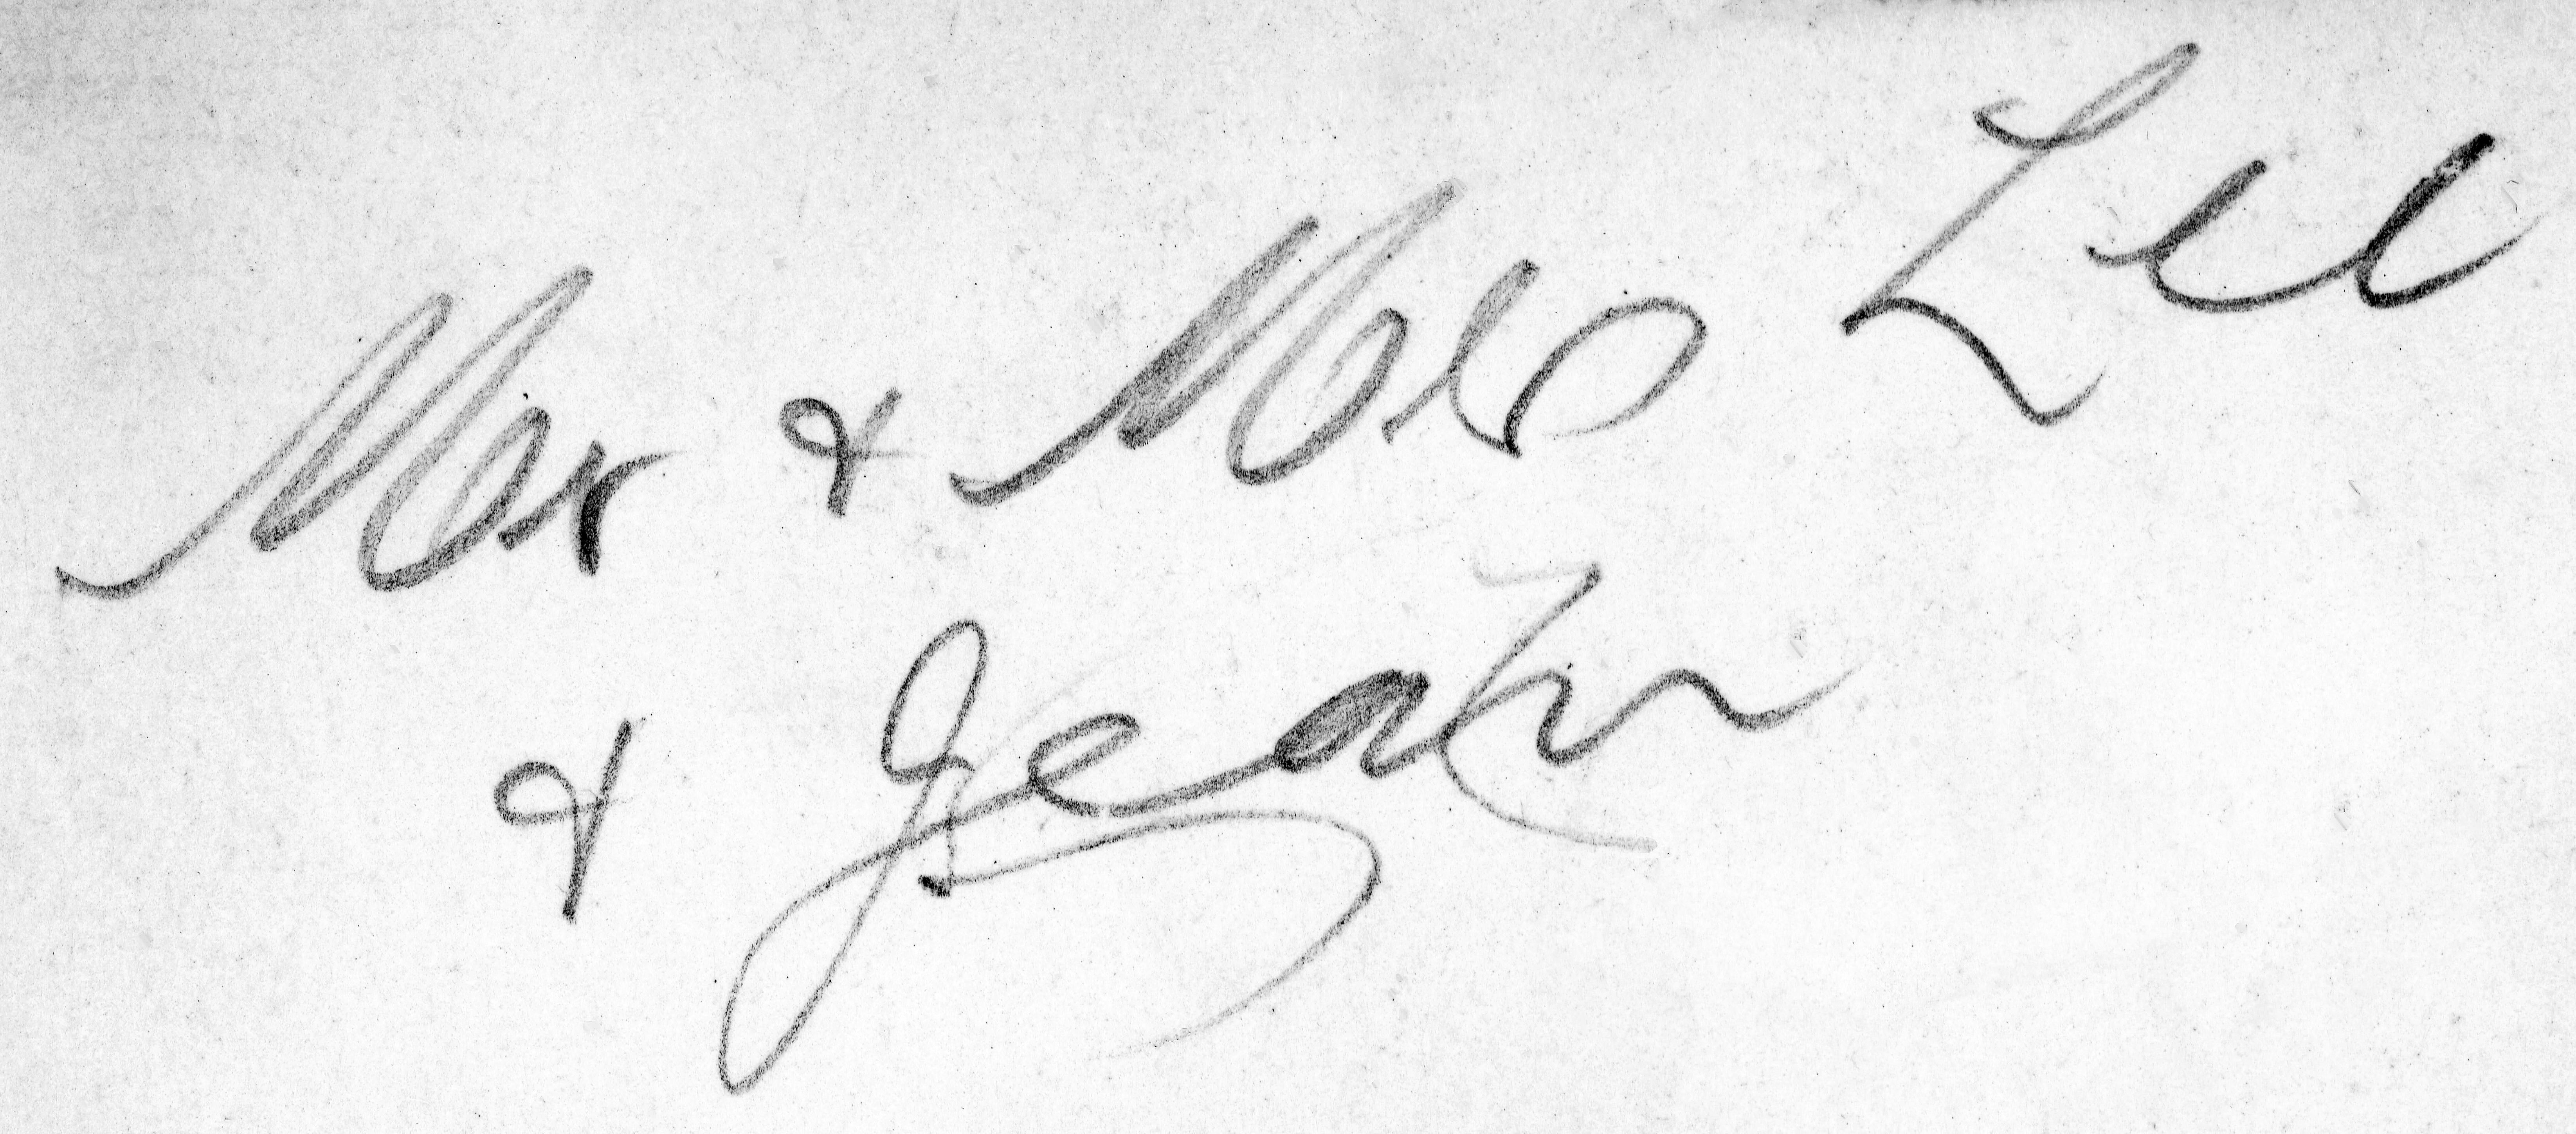 Mr & Mrs Lee
& Jean